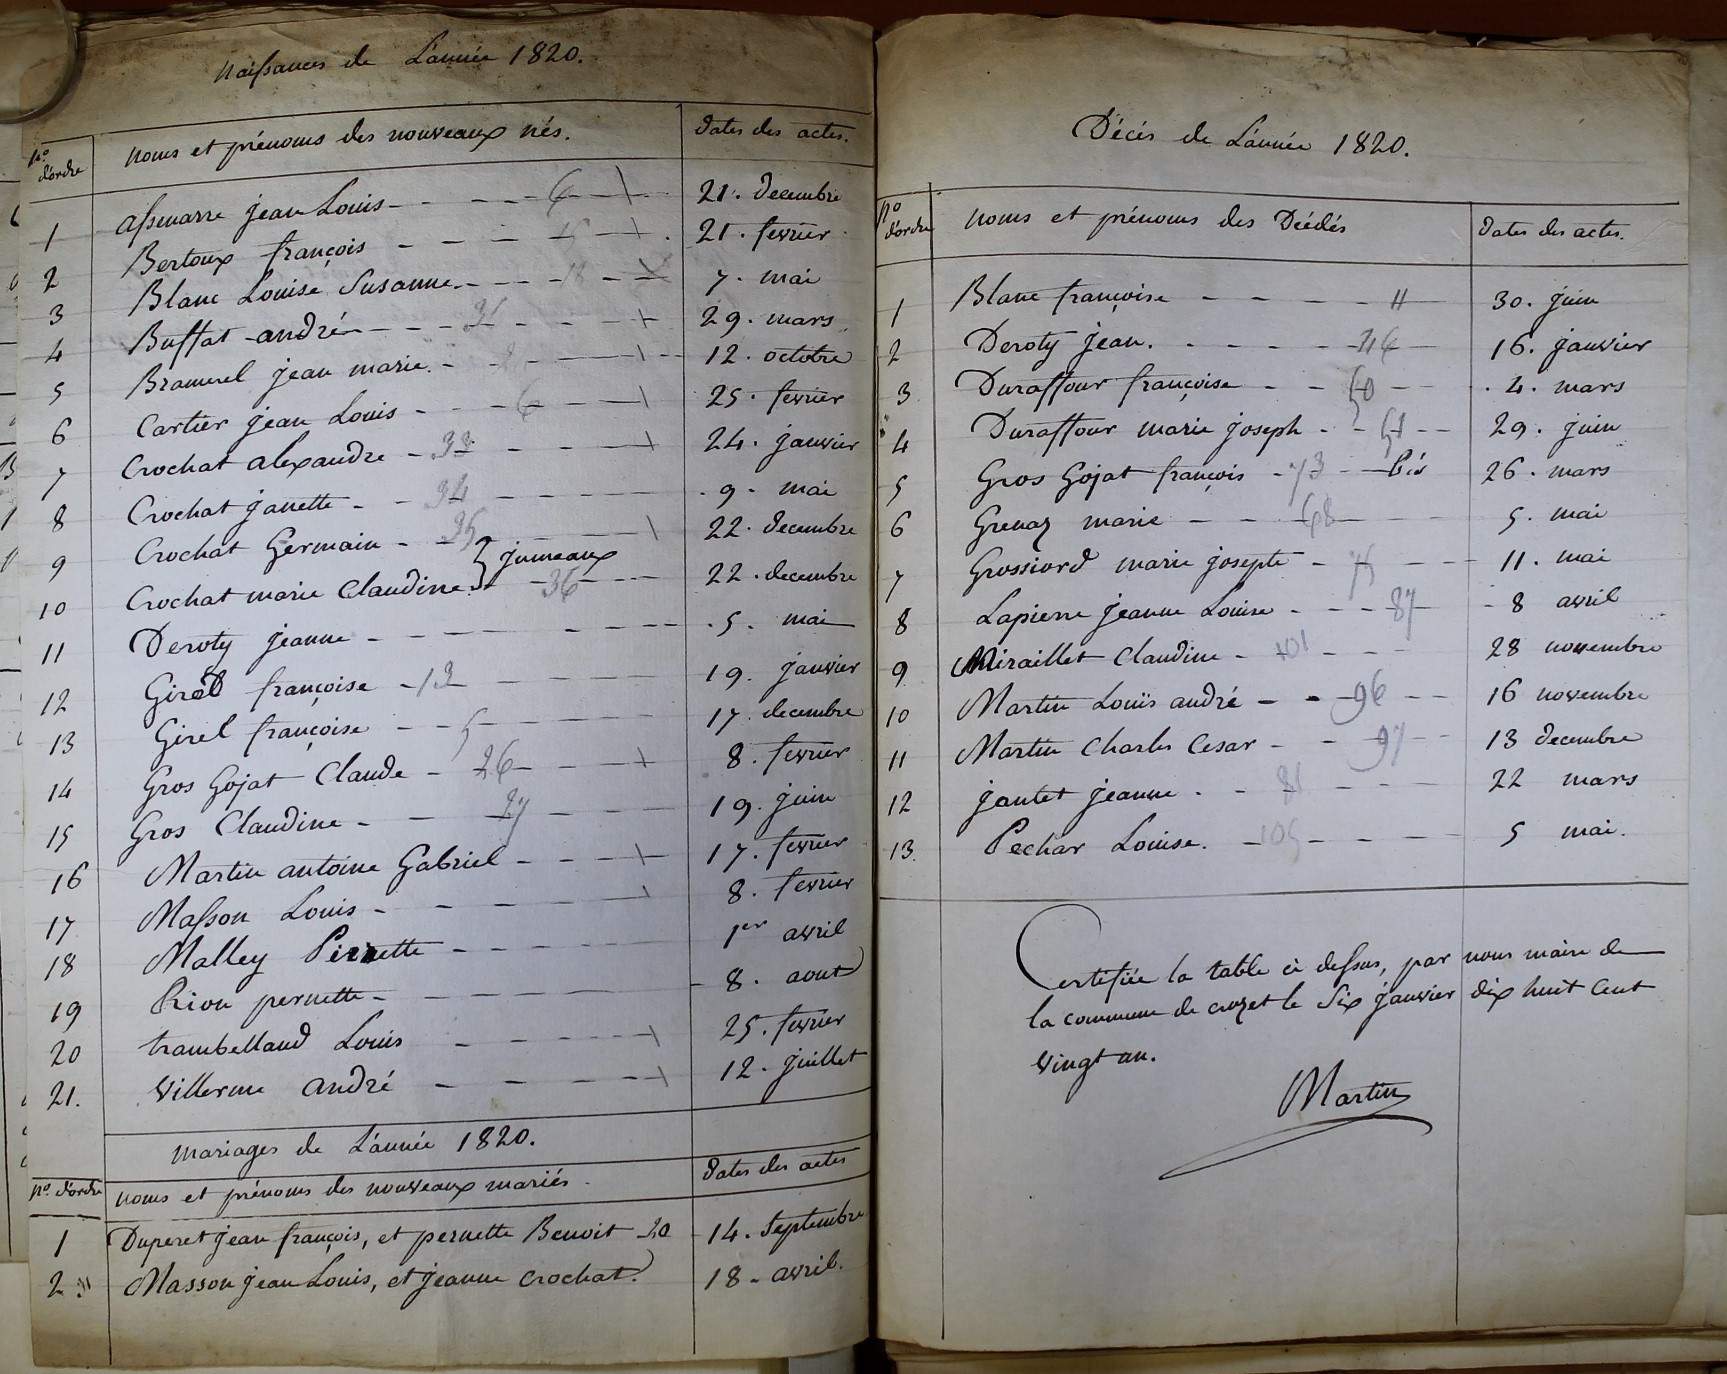 Naissances de L'année 1820.
No. d'ordre Noms et prénoms des nouveaux nés. Dates des actes.
1 Assmarre jean Louis 6 21. decembre
2 Bertoux françois 15 21. fevrier
3 Blanc Louise Susanne 18 7. mai
4 Buffat andré 31 29. mars
5 Bramerel jean marie 12. octobre
6 Cartier jean Louis 6 25. fevrier
7 Crochat alexandre 33 24. janvier
8 Crochat janette 34 9. mai
9 Crochat Germain 35 22. decembre
jumeaux
10 Crochat marie Claudine 36 22. decembre
11 Deroty jeanne 5. mai
12 Girel françoise 13 19. janvier
13 Girel françoise 5 17. decembre
14 Gros Gojat Claude 26 8. fevrier
15 Gros Claudine 27 19. juin
16 Martin antoine Gabriel 17. fevrier
17 Masson Louis 8. fevrier
18 Malley Pernette 1er avril
19 Rion pernette 8. aout
20 trambelland Louis 25. fevrier
21. Villerme andré 12. juillet
Mariages de L'année 1820.
No. d'ordre Noms et prénoms des nouveaux mariés. Dates des actes
1 Duperet jean françois, et pernette Benoit 20 14. Septembre
2 Masson jean Louis, et jeanne Crochat. 18. avril.
Décés de L'année 1820.
No d'ordre Noms et prénoms des Dédés Dates des actes.
1 Blanc françoise 11 30. juin
2 Deroty jean. 46 16. janvier
3 Duraffour françoise 50 4. mars
4 Duraffour marie joseph 51 29. juin
5 Gros Gojat françois 73 bis 26. mars
6 Grenaz marie 68 5. mai
7 Grossiord marie josepte 75 11. mai
8 Lapierre jeanne Louise 87 8 avril
9 Miraillet Claudine 101 28 novembre
10 Martin Louis andré 96 16 novembre
11 Martin Charles Cesar 97 13 decembre
12 jantet jeanne 81 22 mars
13. Pechar Louise. 105 5 mai.
Certifiée la table ci dessus, par nous maire de
la commune de crozet le Six janvier dix huit Cent
vingt un.
Martin